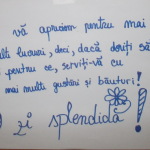 vă apreciem pentru mai
multi lucruri, deci, dacă doriți să
pentru ce, serviți-vă cu
mai multi gustări și băuturi!
O zi splendidă!